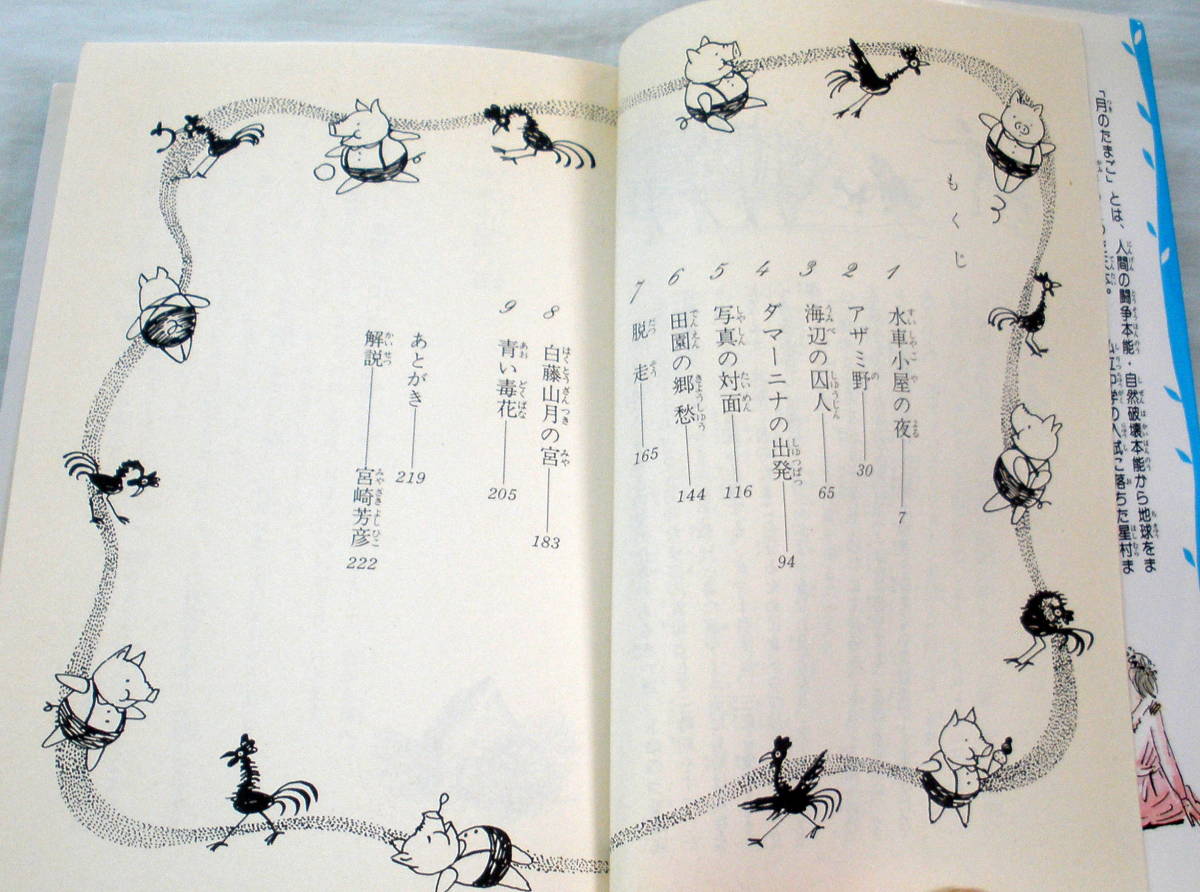 「月のたまご」とは、人間の闘争本能・自然破壊本能から地球をま
中学の入試に落ちた星村ま
もくじ
1 水車小屋の夜 7
2 アザミ野 30
3 海辺の囚人 65
4 ダマーニナの出発 94
5 写真の対面 116
6 田園の郷愁 144
7 脱走 165
8 白藤山月の宮 183
9 青い毒花 205
あとがき 219
解説 宮崎芳彦 222